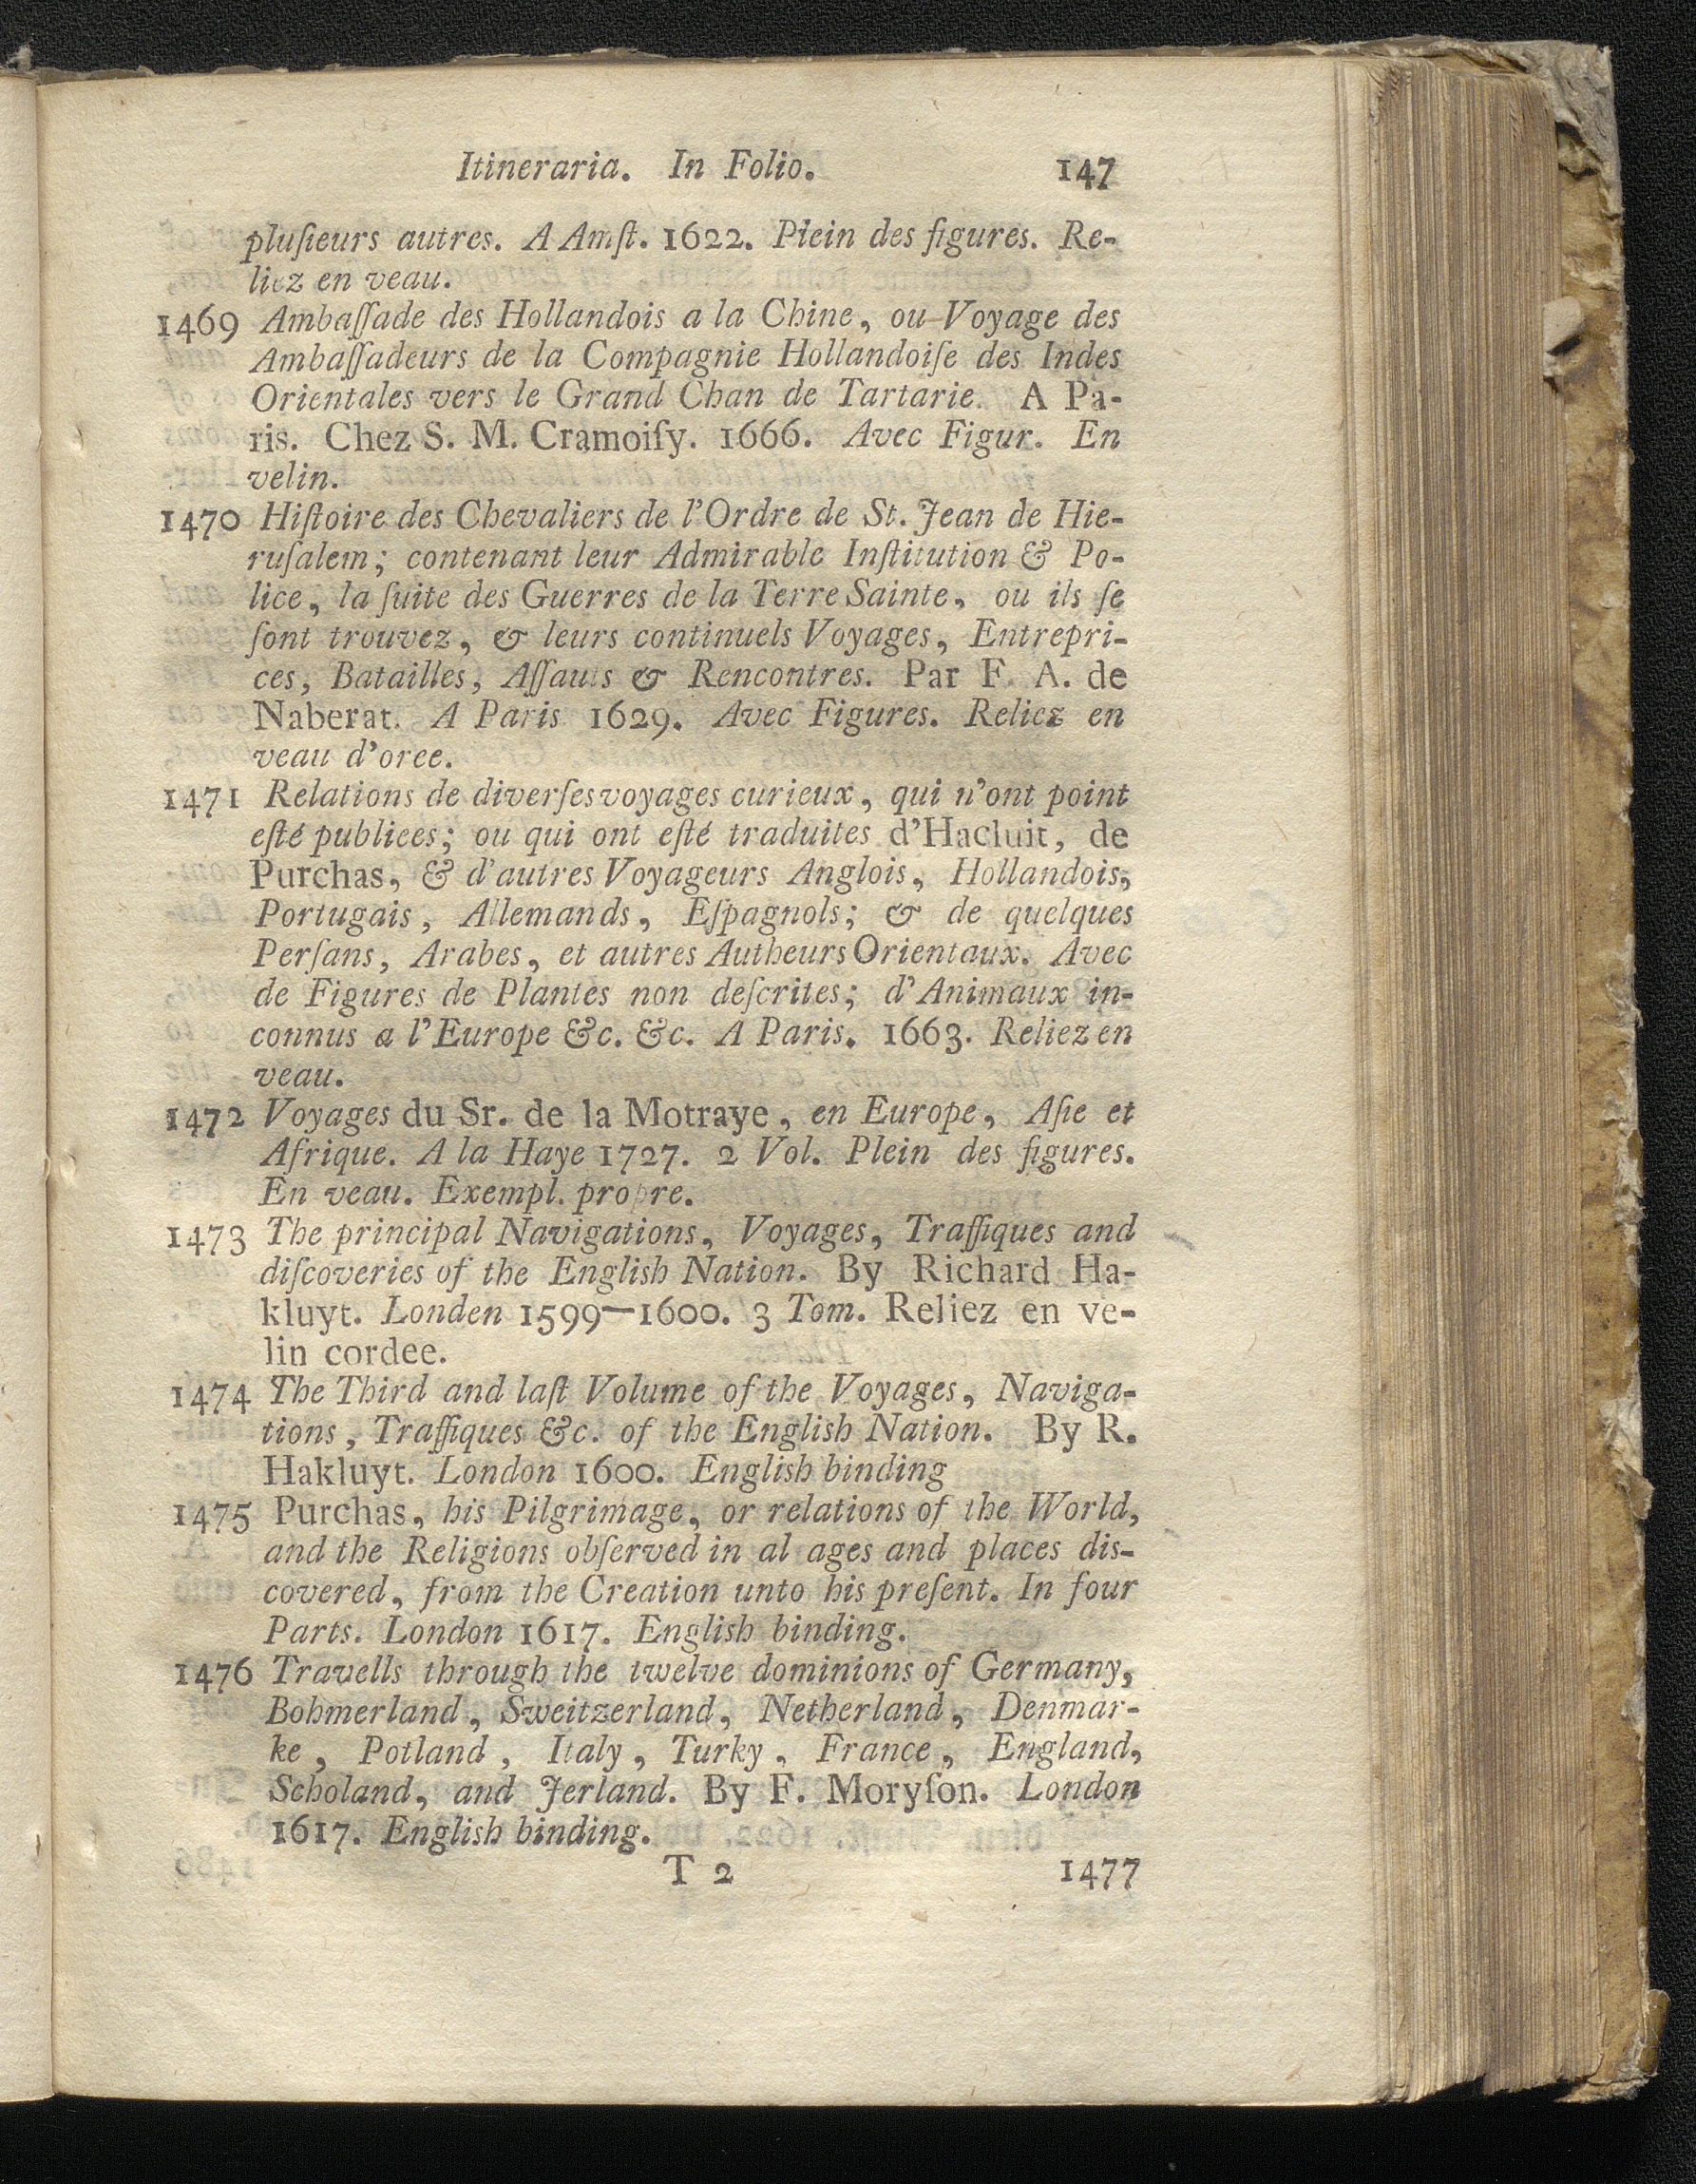 Itineraria. In Folio. 147
pluſieurs autres. A Amſt. 1622. Plein des figures. Re-
liez en veau.
1469 Ambaſſade des Hollandois a la Chine, ou Voyage des
Ambaſſadeurs de la Compagnie Hollandoiſe des Indes
Orientales vers le Grand Chan de Tartarie. A Pa-
ris. Chez S. M. Cramoiſy. 1666. Avec Figur. En
velin.
1470 Hiſtoire des Chevaliers de l'Ordre de St. Jean de Hie-
ruſalem; contenant leur Admirable Inſtitution & Po-
lice, la ſuite des Guerres de la Terre Sainte, ou ils ſe
ſont trouvez, & leurs continuels Voyages, Entrepri-
ces, Batailles, Aſſauts & Rencontres. Par F. A. de
Naberat. A Paris 1629. Avec Figures. Reliez en
veau d'oree.
1471 Relations de diverſes voyages curieux, qui n'ont point
eſté publiees; ou qui ont eſté traduites d'Hacluit, de
Purchas, & d'autres Voyageurs Anglois, Hollandois,
Portugais, Allemands, Eſpagnols; & de quelques
Perſans, Arabes, et autres Autheurs Orientaux. Avec
de Figures de Plantes non deſcrites; d'Animaux in-
connus a l'Europe &c. &c. A Paris. 1663. Reliez en
veau.
1472 Voyages du Sr. de la Motraye, en Europe, Aſie et
Afrique. A la Haye 1727. 2 Vol. Plein des figures.
En veau. Exempl. propre.
1473 The principal Navigations, Voyages, Traffiques and
diſcoveries of the English Nation. By Richard Ha-
kluyt. Londen 1599—1600. 3 Tom. Reliez en ve-
lin cordee.
1474 The Third and laſt Volume of the Voyages, Naviga-
tions, Traffiques &c. of the English Nation. By R.
Hakluyt. London 1600. English binding
1475 Purchas, his Pilgrimage, or relations of the World,
and the Religions obſerved in al ages and places dis-
covered, from the Creation unto his preſent. In four
Parts. London 1617. English binding.
1476 Travells through the twelve dominions of Germany,
Bohmerland, Sweitzerland, Netherland, Denmar-
ke, Potland, Italy, Turky, France, England,
Scholand, and Jerland. By F. Moryſon. London
1617. English binding.
T 2 1477